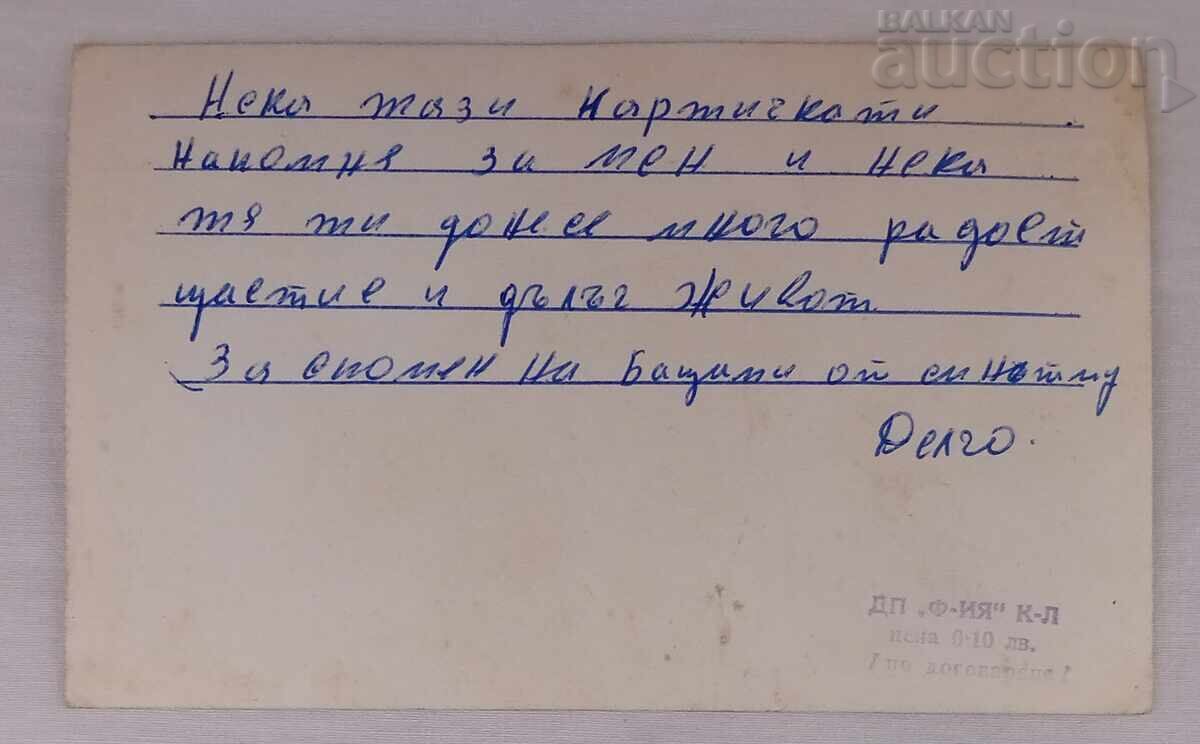 BALKAN
auction
Нека тази картичкати
напомня за мен и нека
тя ти донесе много радост
щастие и дълъг живот
За спомен на Бащами от синътму
Делчо.
ДП „Ф-ИЯ" К-Л
цена 0·10 лв.
/по договаряне/